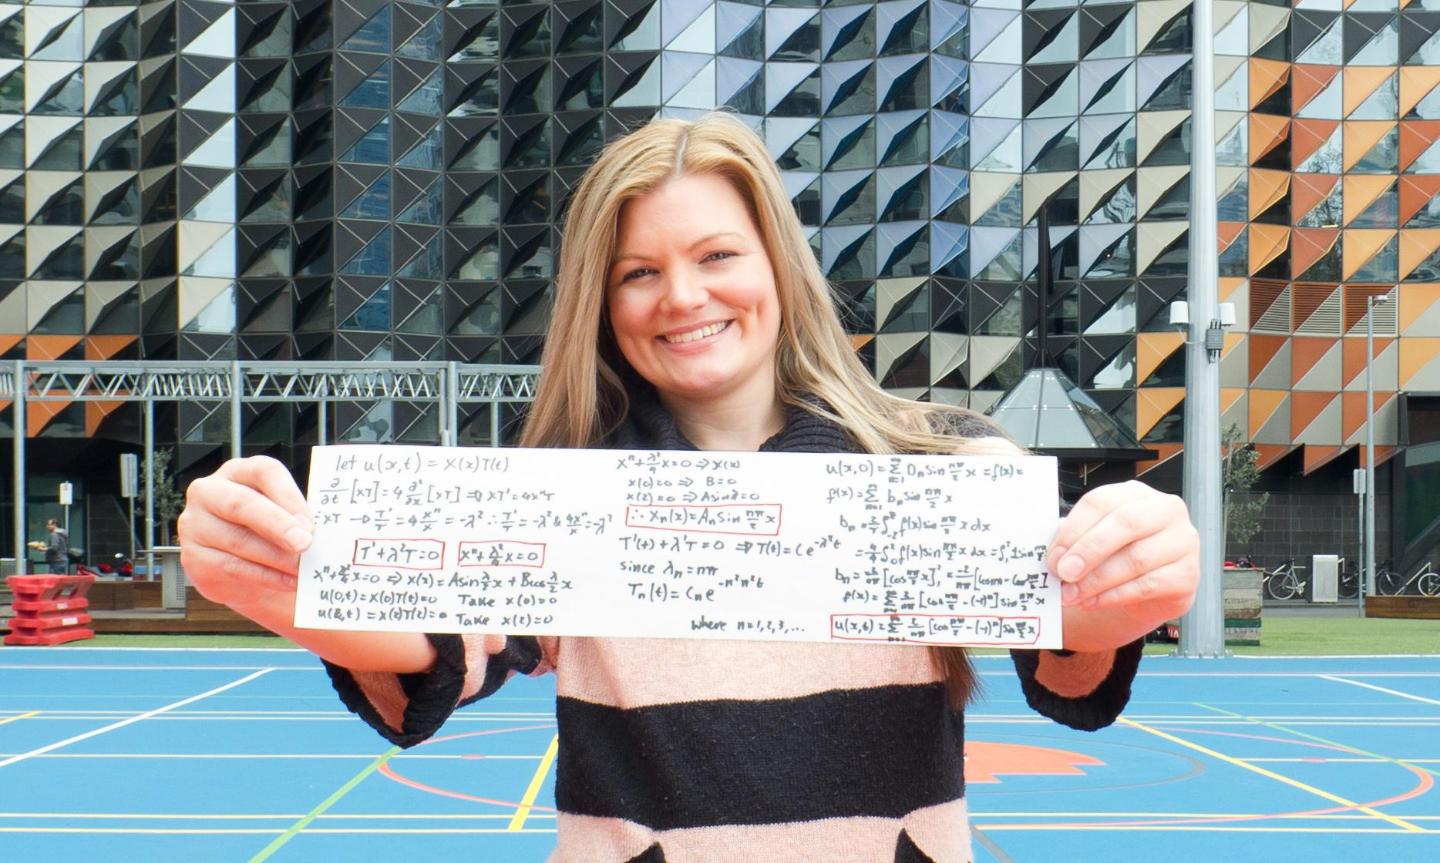 let u(x,t) = X(x)T(t)
∂/∂t [XT] = 4 ∂²/∂x² [XT] ⇒ XT' = 4X"T
÷XT → T'/T = 4 X"/X = -λ² ∴ T'/T = -λ² & 4X"/X = -λ²
T' + λ²T = 0 X" + λ²/4 X = 0
X" + λ²/4 X = 0 ⇒ X(x) = A sin λ/2 x + B cos λ/2 x
u(0,t) = X(0)T(t) = 0 Take X(0) = 0
u(2,t) = X(2)T(t) = 0 Take X(2) = 0
X" + λ²/4 X = 0 ⇒ X(x)
X(0) = 0 ⇒ B = 0
X(2) = 0 ⇒ A sin λ = 0
∴ Xn(x) = An sin nπ/2 x
T'(t) + λ²T = 0 ⇒ T(t) = C e^-λ²t
since λn = nπ
Tn(t) = Cn e^-n²π²t
where n = 1, 2, 3, ...
u(x,0) = ∑ n=1 ∞ Dn sin nπ/2 x = f(x) =
f(x) = ∑ n=1 ∞ bn sin nπ/2 x
bn = f(x) sin nπ/2 x dx
f(x) sin nπ/2 x dx =
bn = [cos nπ/2 x]
f(x) = ∑ 2/nπ [cos nπ/2 - (-1)ⁿ] sin nπ/2 x
u(x,t) = ∑ n=1 ∞ 2/nπ [cos nπ/2 - (-1)ⁿ] sin nπ/2 x